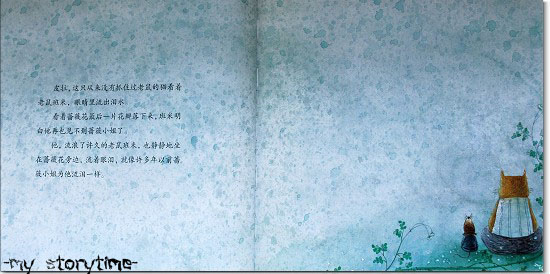 皮拉，这只从来没有抓住过老鼠的猫看着
老鼠班米，眼睛里流出泪水。
看着蔷薇花最后一片花瓣落下来，班米明
白他再也见不到蔷薇小姐了。
他，流浪了许久的老鼠班米，也静静地坐
在蔷薇花旁边，流着眼泪，就像许多年以前蔷
薇小姐为他流泪一样。
-my storytime-